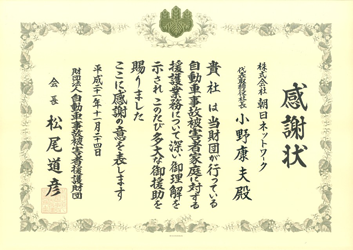 感謝状
株式会社 朝日ネットワーク
代表取締役社長 小野康夫殿
貴社は当財団が行っている
自動車事故被害者家庭に対する
援護業務について深い御理解を
示され このたび多大な御援助を
賜りました
ここに感謝の意を表します
平成二十一年十一月二十四日
財団法人 自動車事故被害者援護財団
会長 松尾道彦